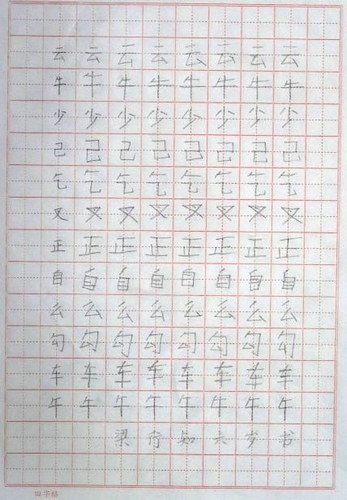 云云云云云云云云
牛牛牛牛牛牛牛牛
少少少少少少少少
己己己己己己己己
乞乞乞乞乞乞乞乞
叉叉叉叉叉叉叉叉
正正正正正正正正
自自自自自自自自
么么么么么么么么
勾勾勾勾勾勾勾勾
车车车车车车车车
午午午午午午午午
梁行知六岁书
田字格